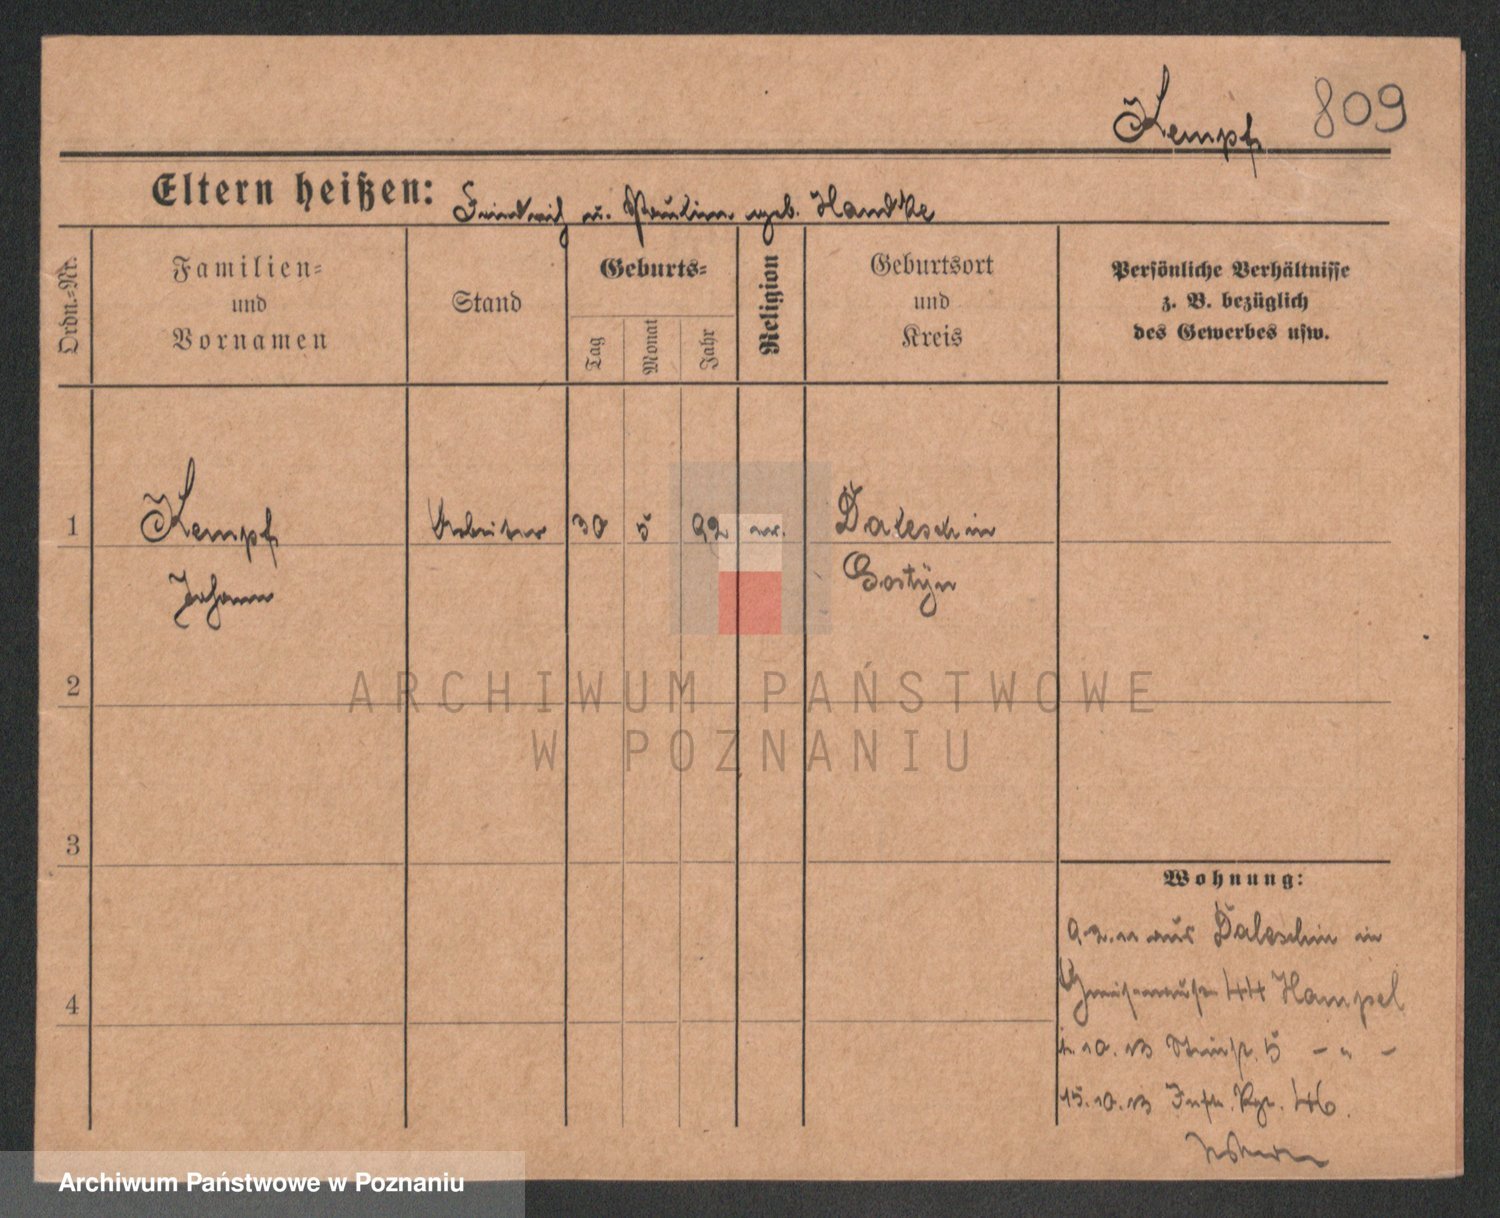 Kempf 809
Eltern heißen: Heinrich u. Pauline geb. Handke
Ordn.-Nr.
Familien-
und
Vornamen
Stand
Geburts-
Tag
Monat
Jahr
Religion
Geburtsort
und
Kreis
Persönliche Verhältnisse
z. B. bezüglich
des Gewerbes usw.
1 Kempf Arbeiter 30 5 92 ev. Daleschin
Johann Gostyn
2
3
4
Wohnung:
9.2.11 aus Daleschin in
44 Hampel
1.10.13 5 - " -
15.10.13 Inft. Rgt. 46.
ARCHIWUM PAŃSTWOWE
W POZNANIU
Archiwum Państwowe w Poznaniu